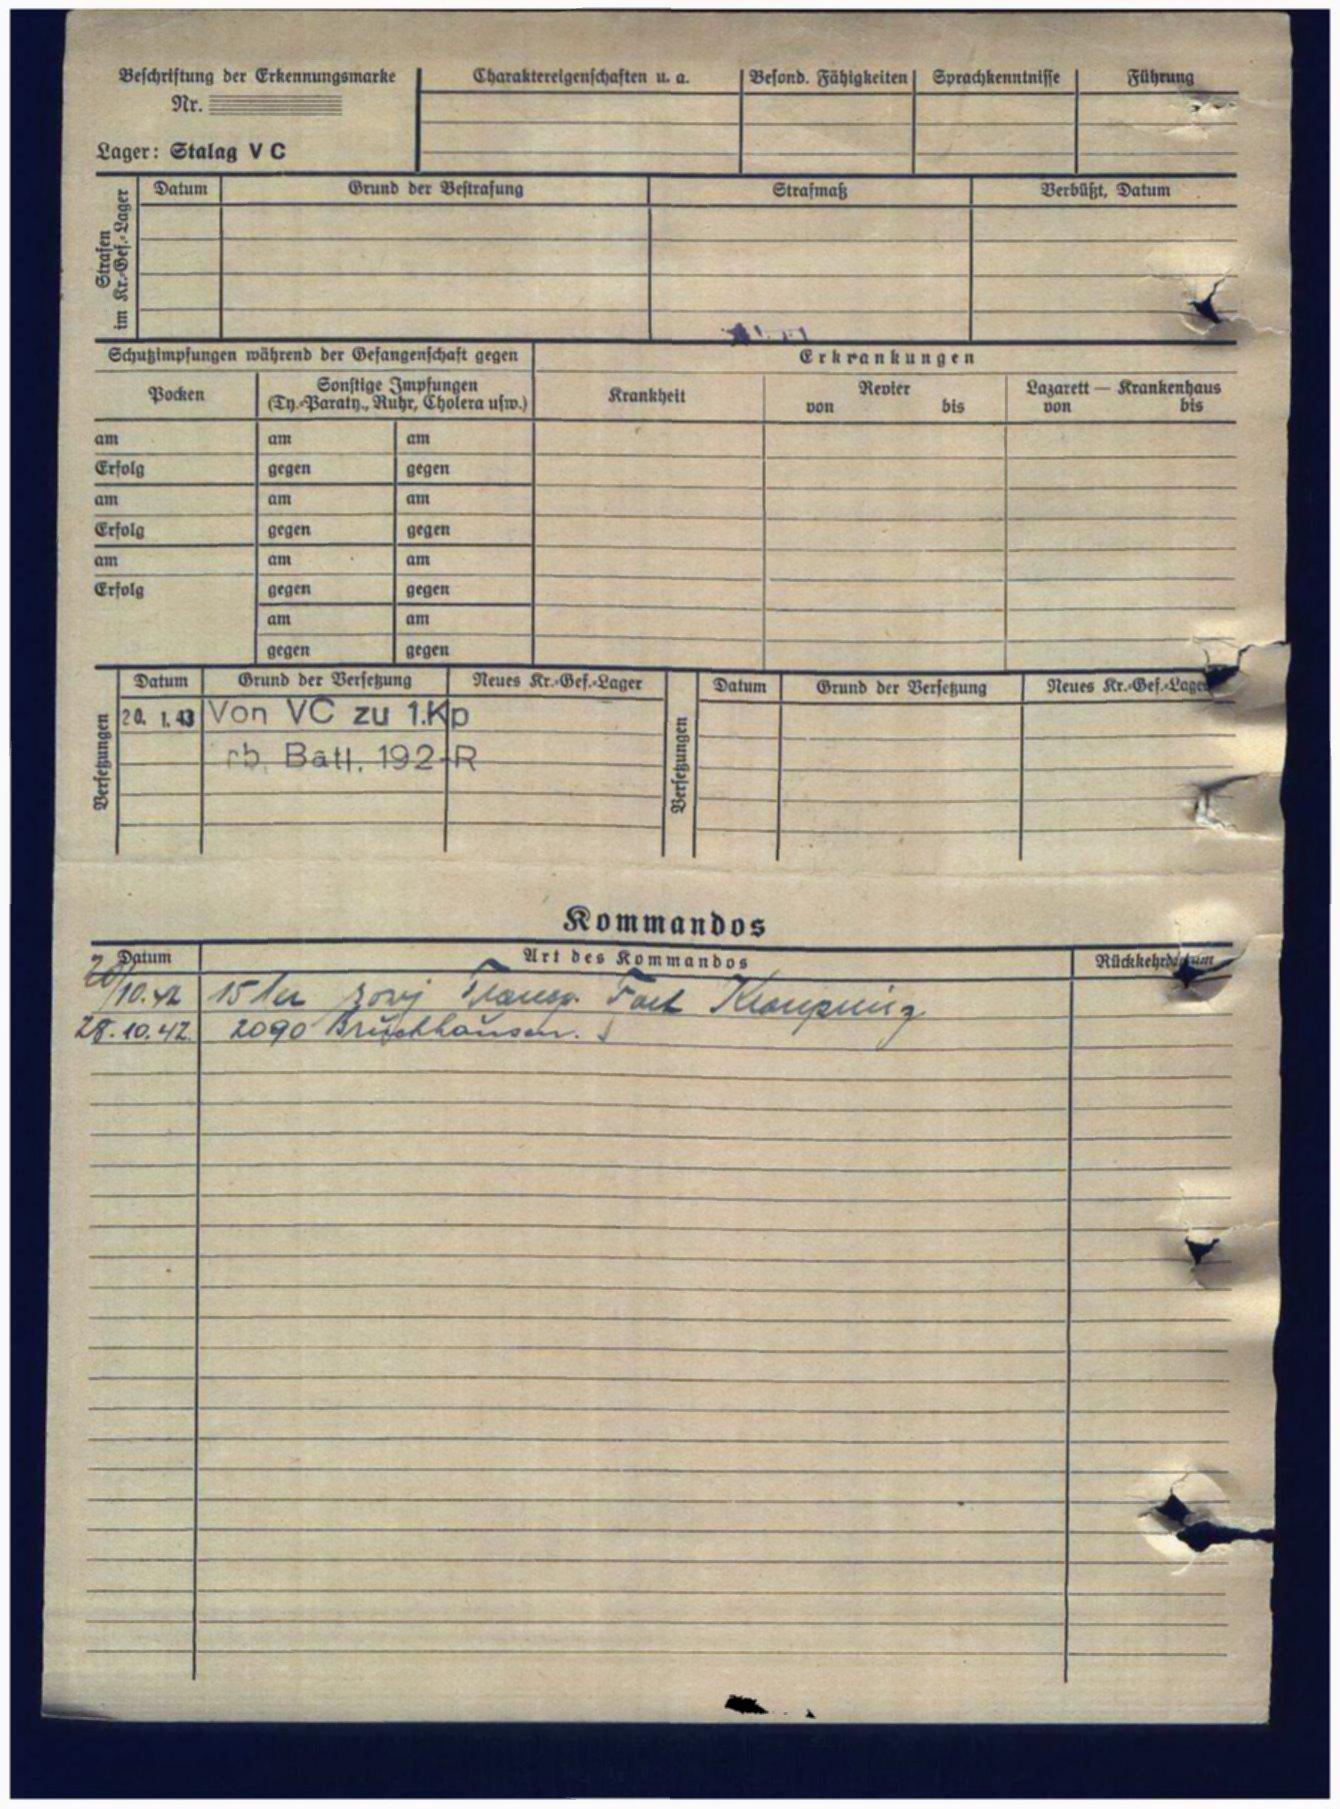 Beschriftung der Erkennungsmarke
Nr.
Lager: Stalag V C
Charaktereigenschaften u. a.
Besond. Fähigkeiten
Sprachkenntnisse
Führung
Strafen
im Kr.-Gef.-Lager
Datum
Grund der Bestrafung
Strafmaß
Verbüßt, Datum
Schutzimpfungen während der Gefangenschaft gegen
Pocken
Sonstige Impfungen
(Ty.-Paraty., Ruhr, Cholera usw.)
am am am
Erfolg gegen gegen
am am am
Erfolg gegen gegen
am am am
Erfolg gegen gegen
am am
gegen gegen
Erkrankungen
Krankheit
Revier
von bis
Lazarett — Krankenhaus
von bis
Versetzungen
Datum Grund der Versetzung Neues Kr.-Gef.-Lager
20. 1. 43 Von VC zu 1.Kp
rb. Batl. 192-R
Versetzungen
Datum Grund der Versetzung Neues Kr.-Gef.-Lager
Kommandos
Datum Art des Kommandos Rückkehrdatum
20/10.42
28. 10. 42. 2090 Bruchhausen.